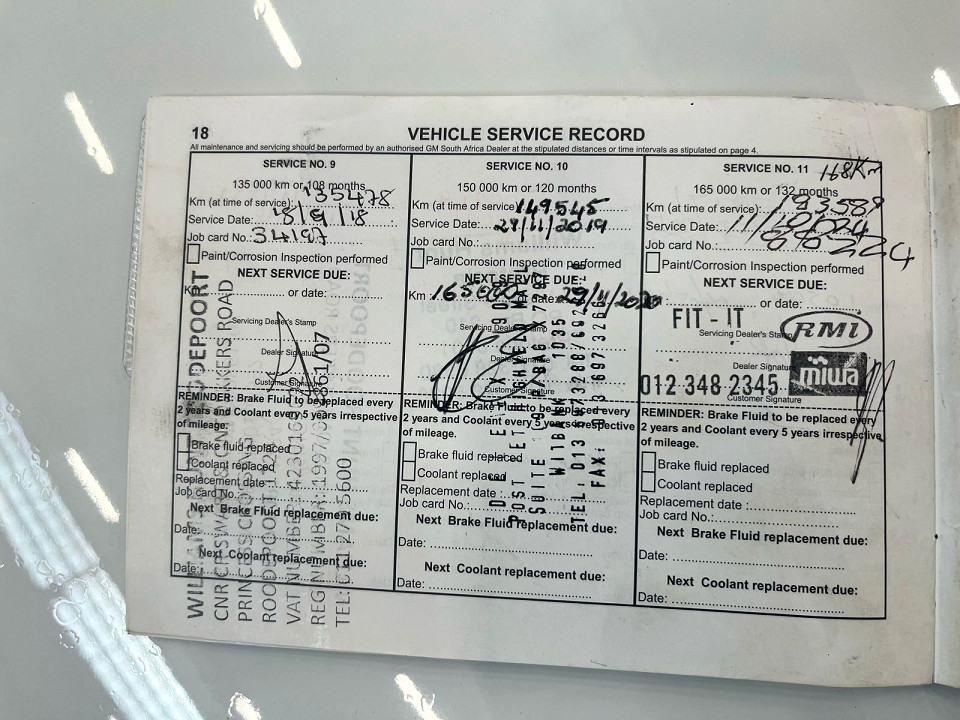 18
VEHICLE SERVICE RECORD
All maintenance and servicing should be performed by an authorised GM South Africa Dealer at the stipulated distances or time intervals as stipulated on page 4.
SERVICE NO. 9
135 000 km or 108 months
Km (at time of service): 135478
Service Date: 18/9/18
Job card No.: 34197
Paint/Corrosion Inspection performed
NEXT SERVICE DUE:
Km or date:
Servicing Dealer's Stamp
Dealer Signature
Customer Signature
REMINDER: Brake Fluid to be replaced every
2 years and Coolant every 5 years irrespective
of mileage.
Brake fluid replaced
Coolant replaced
Replacement date :
Job card No.:
Next Brake Fluid replacement due:
Date:
Next Coolant replacement due:
Date:
SERVICE NO. 10
150 000 km or 120 months
Km (at time of service): 149545
Service Date: 29/11/2019
Job card No.:
Paint/Corrosion Inspection performed
NEXT SERVICE DUE:
Km : 165000 or date: 29/11/2020
Servicing Dealer's Stamp
Dealer Signature
Customer Signature
REMINDER: Brake Fluid to be replaced every
2 years and Coolant every 5 years irrespective
of mileage.
Brake fluid replaced
Coolant replaced
Replacement date :
Job card No.:
Next Brake Fluid replacement due:
Date:
Next Coolant replacement due:
Date:
SERVICE NO. 11
168Km
165 000 km or 132 months
Km (at time of service):
Service Date:
Job card No.:
Paint/Corrosion Inspection performed
NEXT SERVICE DUE:
or date:
FIT - IT
RMI
Servicing Dealer's Stamp
Dealer Signature
miwa
012 348 2345
Customer Signature
REMINDER: Brake Fluid to be replaced every
2 years and Coolant every 5 years irrespective
of mileage.
Brake fluid replaced
Coolant replaced
Replacement date :
Job card No.:
Next Brake Fluid replacement due:
Date:
Next Coolant replacement due:
Date: